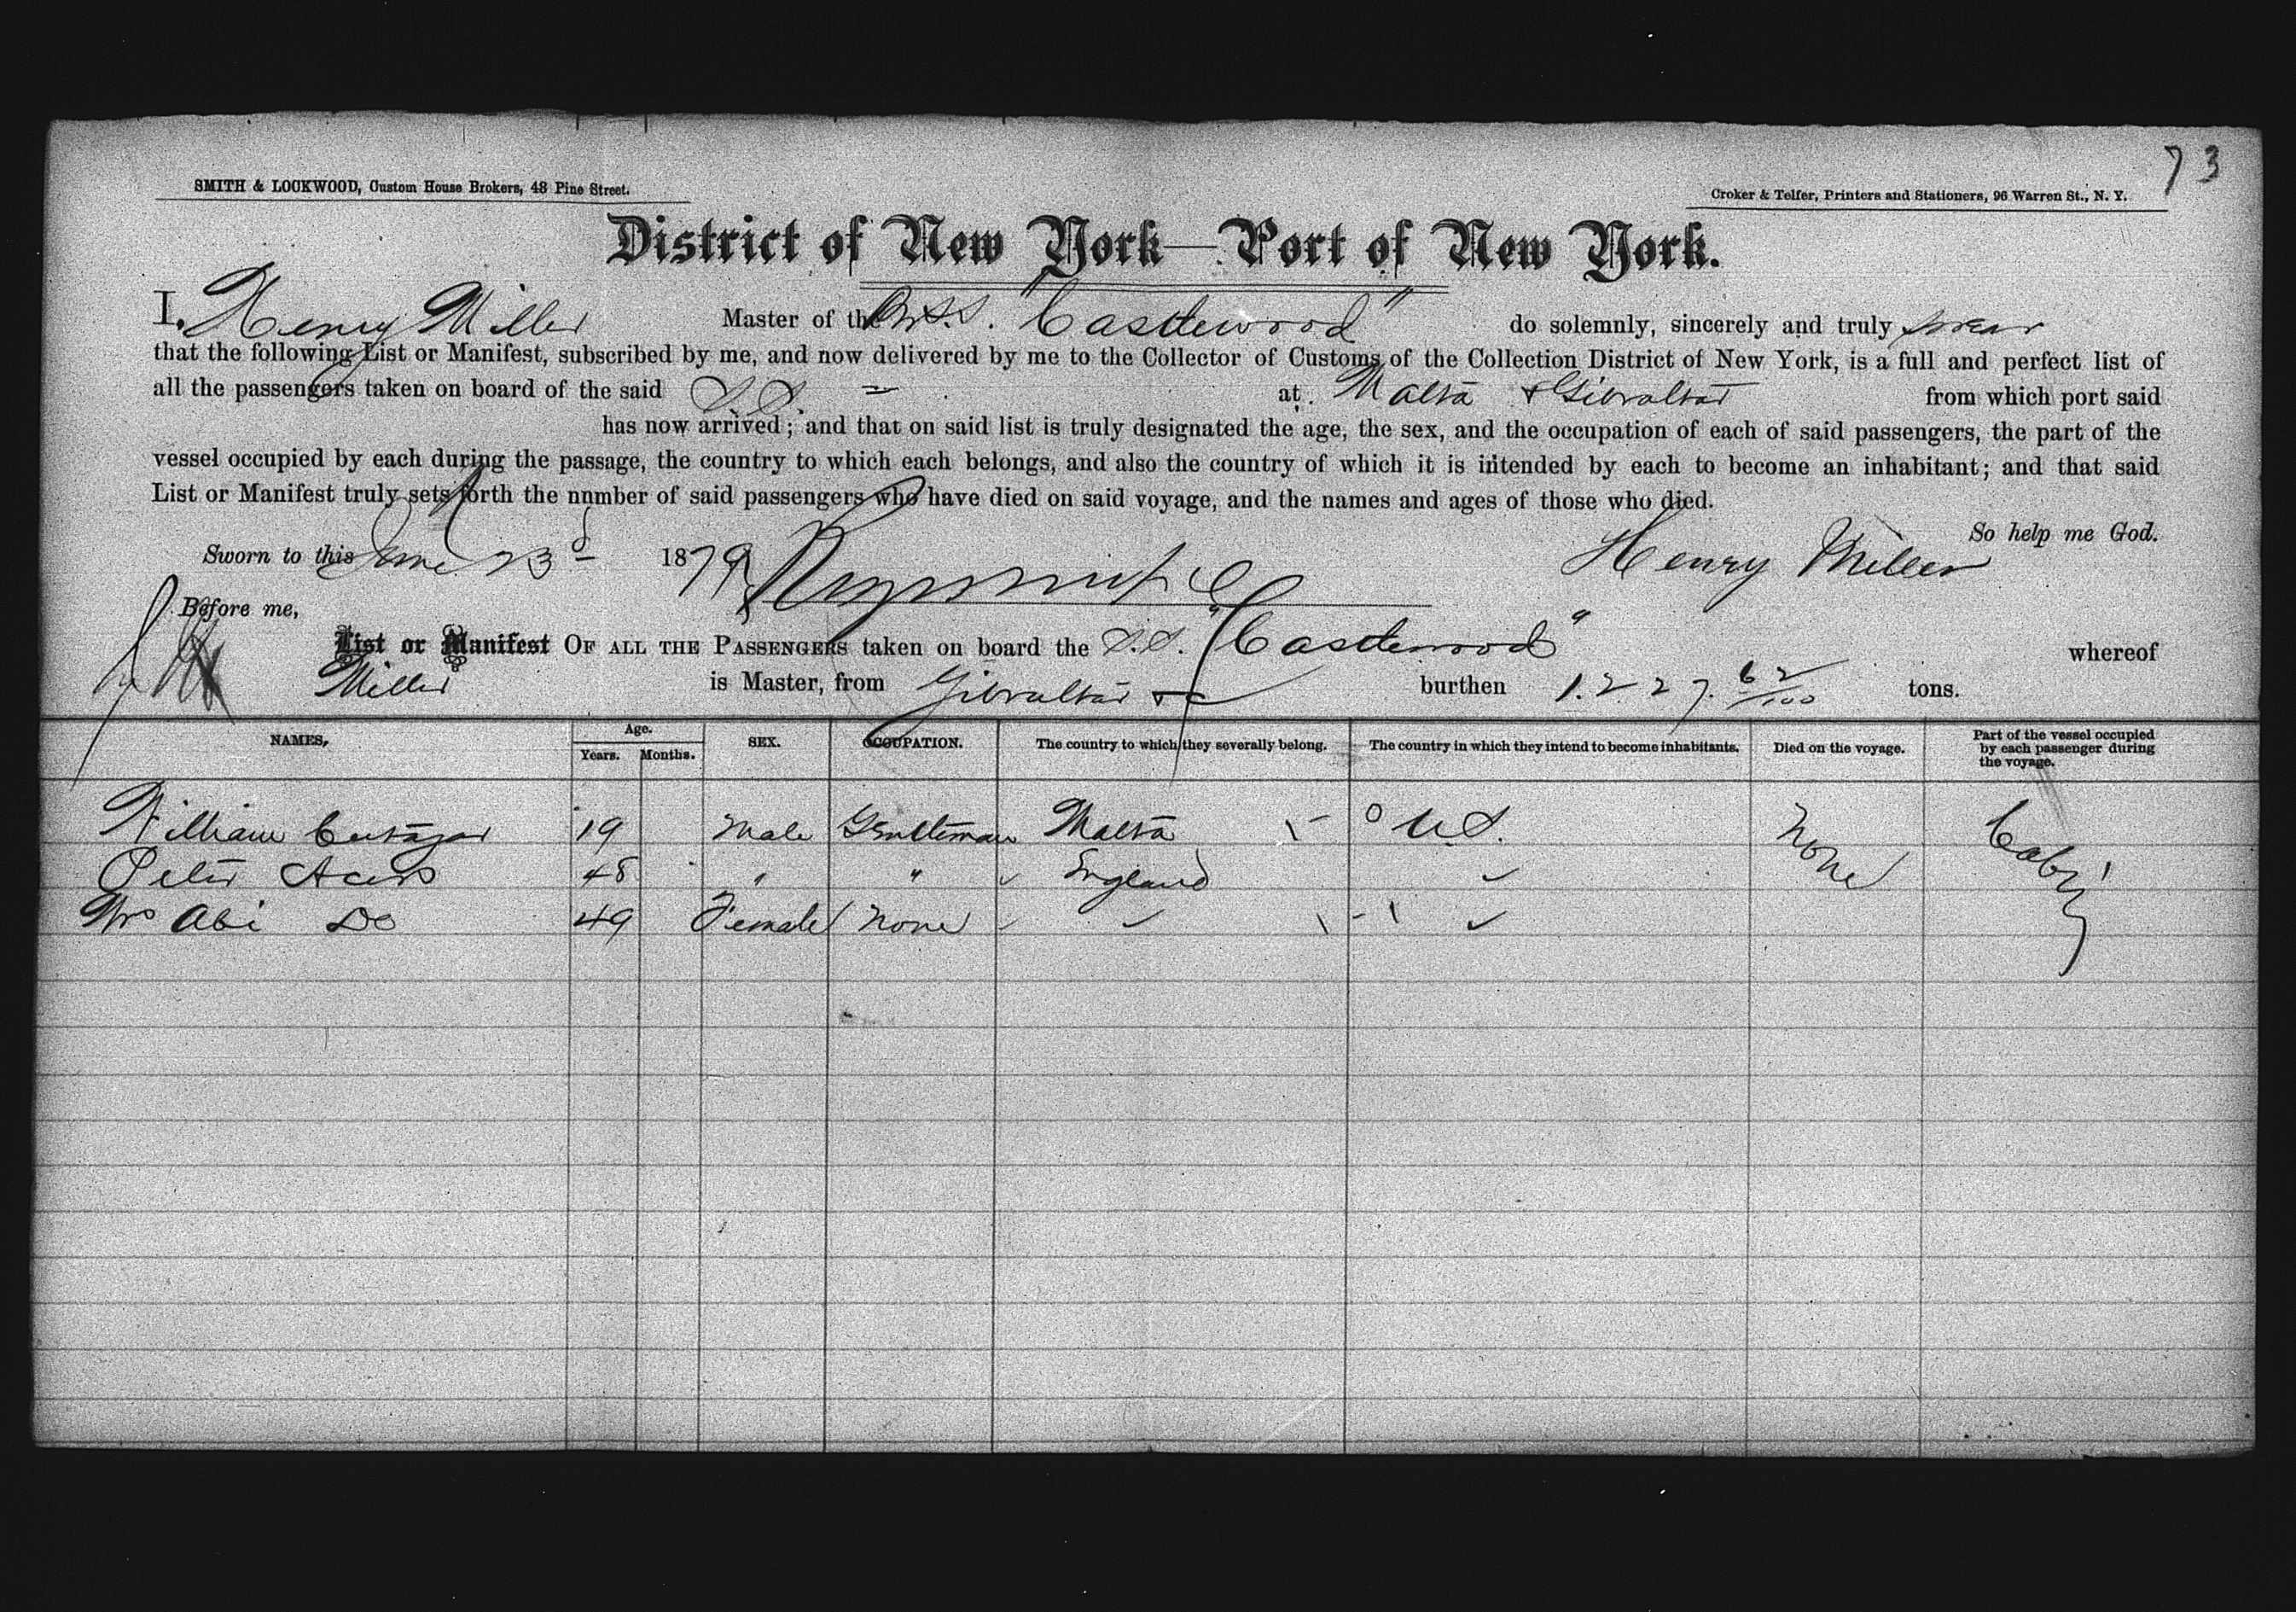 73
SMITH & LOCKWOOD, Custom House Brokers, 48 Pine Street.
Croker & Telfer, Printers and Stationers, 96 Warren St., N. Y.
District of New York—Port of New York.
I, Henry Miller Master of the Br S.S. "Castlewood" do solemnly, sincerely and truly swear
that the following List or Manifest, subscribed by me, and now delivered by me to the Collector of Customs of the Collection District of New York, is a full and perfect list of
all the passengers taken on board of the said S S at Malta & Gibraltar from which port said
has now arrived; and that on said list is truly designated the age, the sex, and the occupation of each of said passengers, the part of the
vessel occupied by each during the passage, the country to which each belongs, and also the country of which it is intended by each to become an inhabitant; and that said
List or Manifest truly sets forth the nnmber of said passengers who have died on said voyage, and the names and ages of those who died.
So help me God.
Sworn to this June 23d 1879 Henry Miller
Before me,
List or Manifest OF ALL THE PASSENGERS taken on board the S.S. "Castlewood" whereof
Miller is Master, from Gibraltar &c burthen 1.227. 62/100 tons.
NAMES, Age. Years. Months. SEX. OCCUPATION. The country to which they severally belong. The country in which they intend to become inhabitants. Died on the voyage. Part of the vessel occupied by each passenger during the voyage.
William 19 Male Gentleman Malta U.S. None Cabin
Peter Acers 48 " " England ✓
Mrs Abi Do 49 Female None ✓ ✓